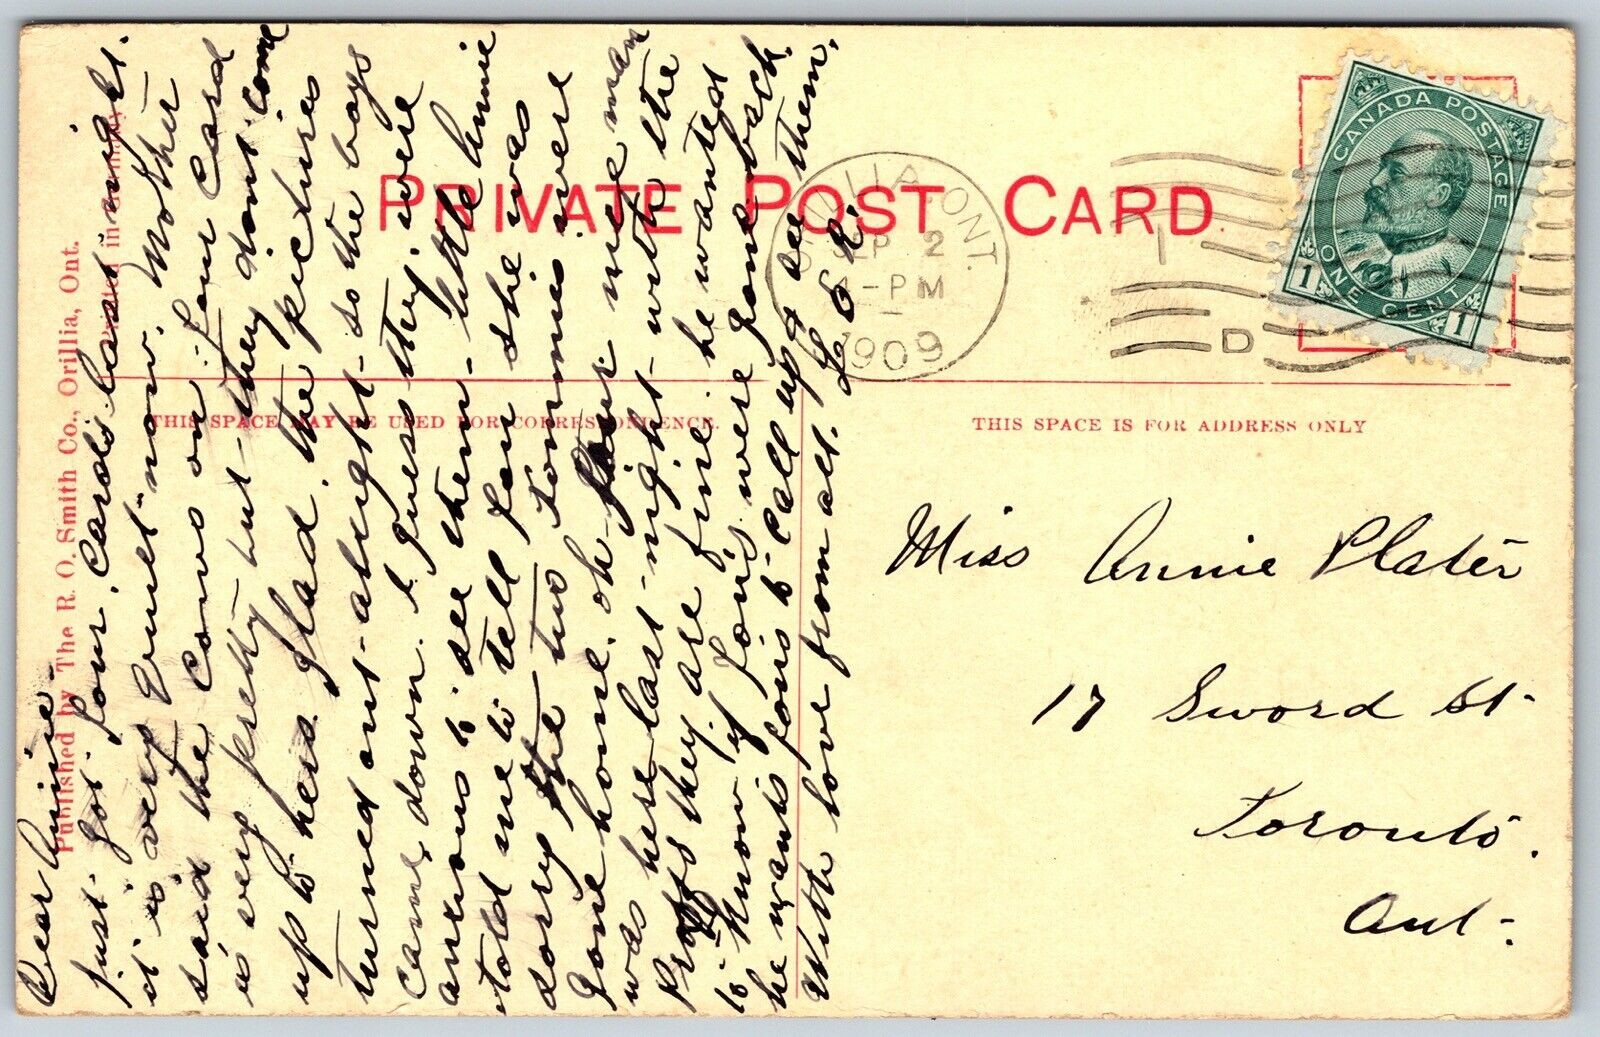 PRIVATE POST CARD
THIS SPACE MAY BE USED FOR CORRESPONDENCE.
THIS SPACE IS FOR ADDRESS ONLY
Published by The R. O. Smith Co., Orillia, Ont.
ORILLIA, ONT.
SP 2
PM
1909
1
D
CANADA POSTAGE
ONE CENT
1 1
Miss Annie Plater
17 Sword St-
Toronto.
Ont-
Dear Annie-
Just got your cards last night.
it is very quiet now. Mother
said the cows on your card
is very pretty but they dont come
up to hers. Glad the pictures
turned out alright- so the boys
came down. I guess they were
anxious to see them- little Annie
told me to tell you she was
sorry the two Tommies were
gone home. oh your nice man
was here last night with the
they are fine he wanted
to know if you's were gone back
he wants you's to call up & see them.
With love from all.